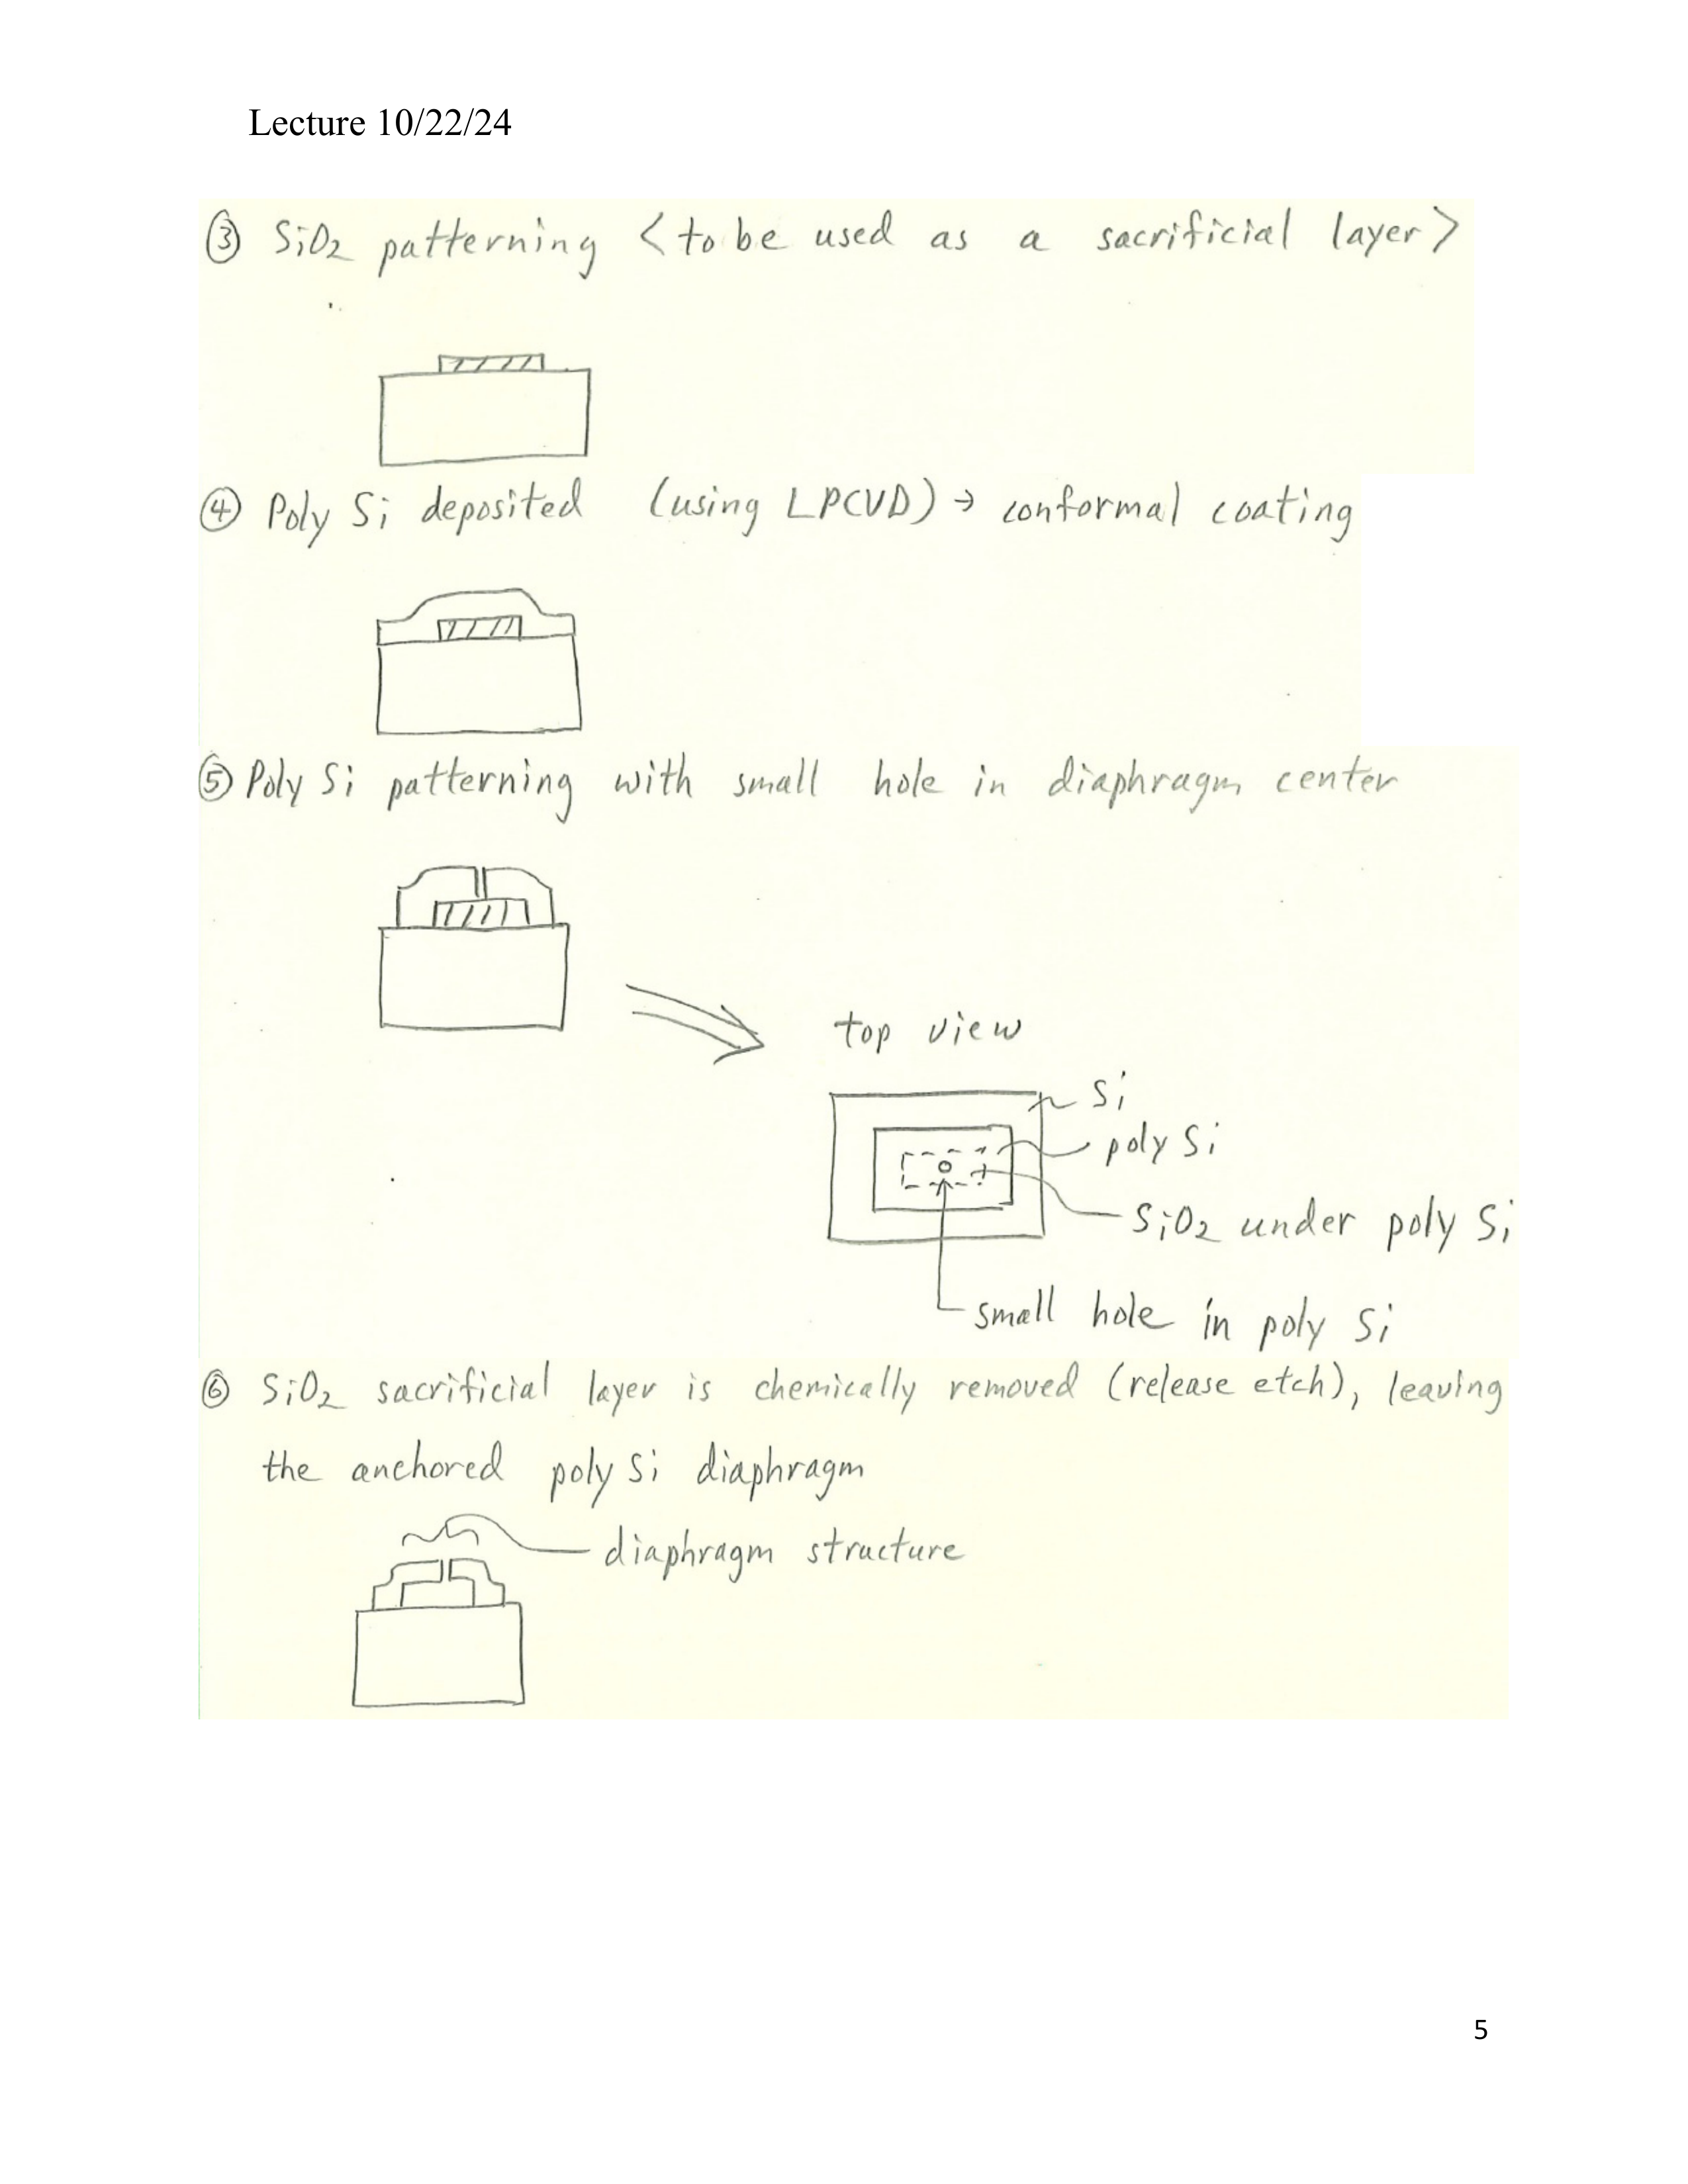 Lecture 10/22/24
③ SiO₂ patterning <to be used as a sacrificial layer>
④ Poly Si deposited (using LPCVD) → conformal coating
⑤ Poly Si patterning with small hole in diaphragm center
top view
Si
poly Si
SiO₂ under poly Si
small hole in poly Si
⑥ SiO₂ sacrificial layer is chemically removed (release etch), leaving
the anchored poly Si diaphragm
diaphragm structure
5